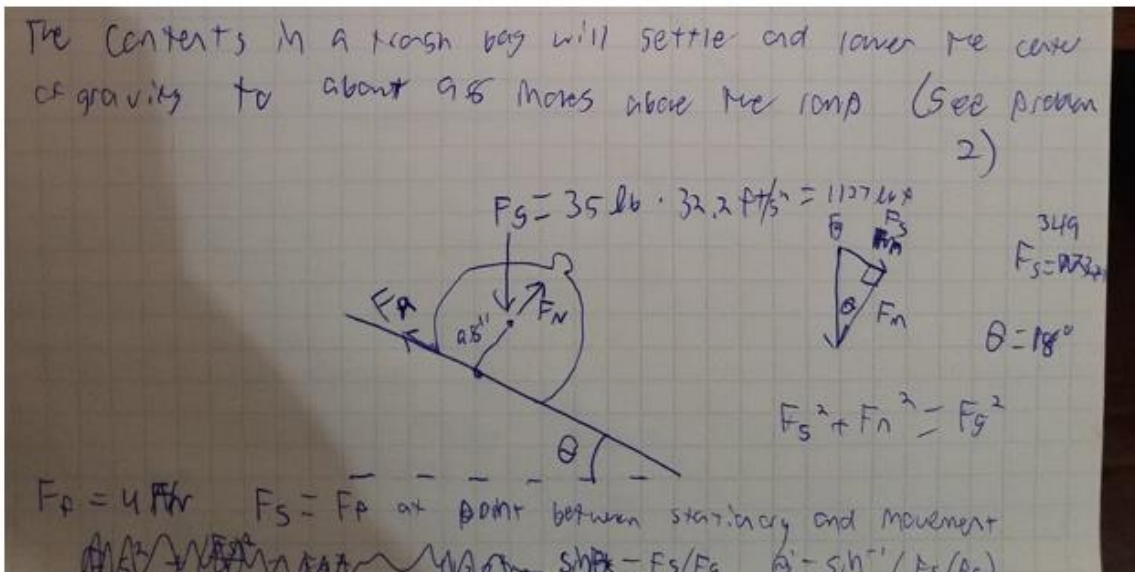 The contents in a trash bag will settle and lower the center
of gravity to about 9.5 inches above the ramp (See problem
2)
Fg = 35 lb · 32.2 ft/s² = 1127 lbf
Fs
349
Fs =
θ
Fn
θ = 18°
FN
9.5"
Fs² + Fn² = Fg²
θ
Fs = at point between stationary and movement
= Fs/Fg